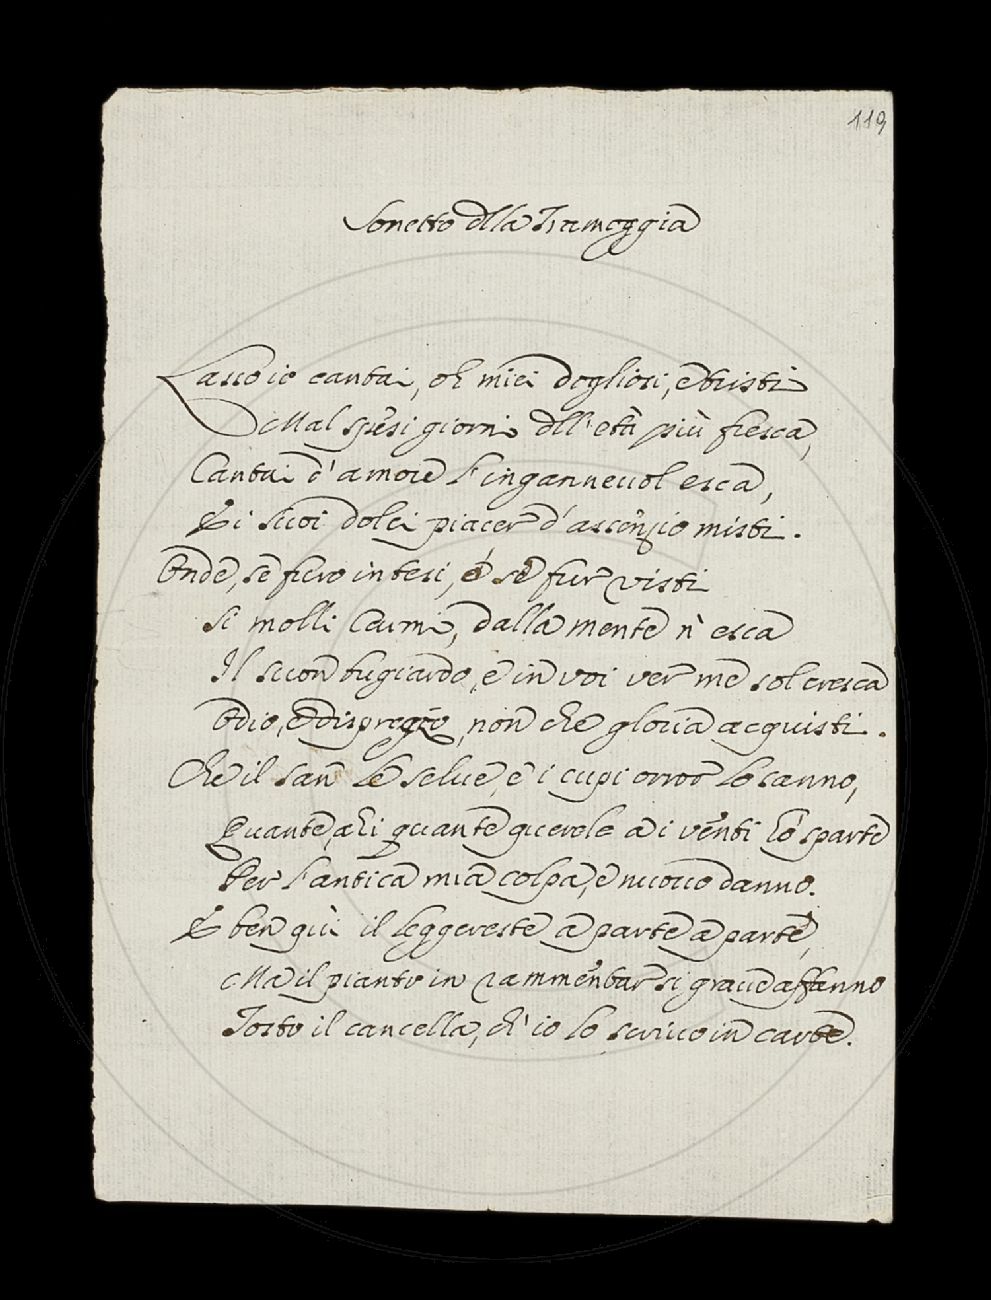 119
Sonetto dlla Tramoggia
Lasso io cantai, oh miei dogliosi, e tristi
Mal spesi giorni dll' età più fresca,
Cantai d'amore l'ingannevol esca,
E i suoi dolci piacer d'assenzio misti.
Onde, se furo intesi, e se fur visti
Si molli Carmi, dalla mente n' esca
Il suon bugiardo, e in voi ver me sol cresca
Odio, e dispregio, non che gloria acquisti.
Che il san le selve, e i cupi orror lo sanno,
Quante, ahi quante querele a i venti hò sparte
Per l'antica mia colpa, e nuovo danno.
E ben quì il leggereste a parte a parte,
Ma il pianto in rammentar sì grave affanno
Tosto il cancella, ch' io lo scrivo in carte.